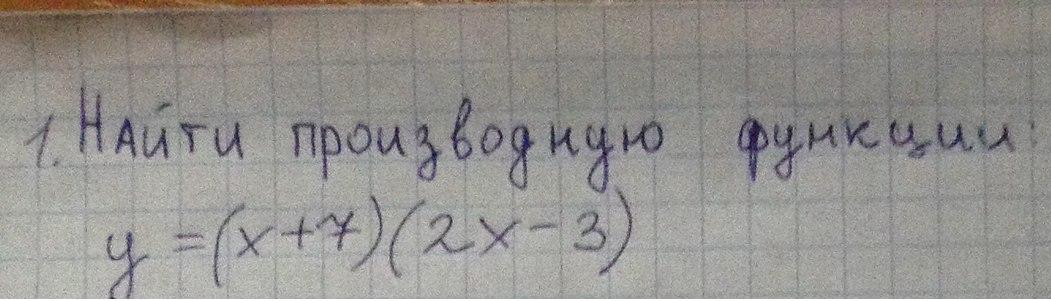 1. Найти производную функции:
y = (x+7)(2x-3)